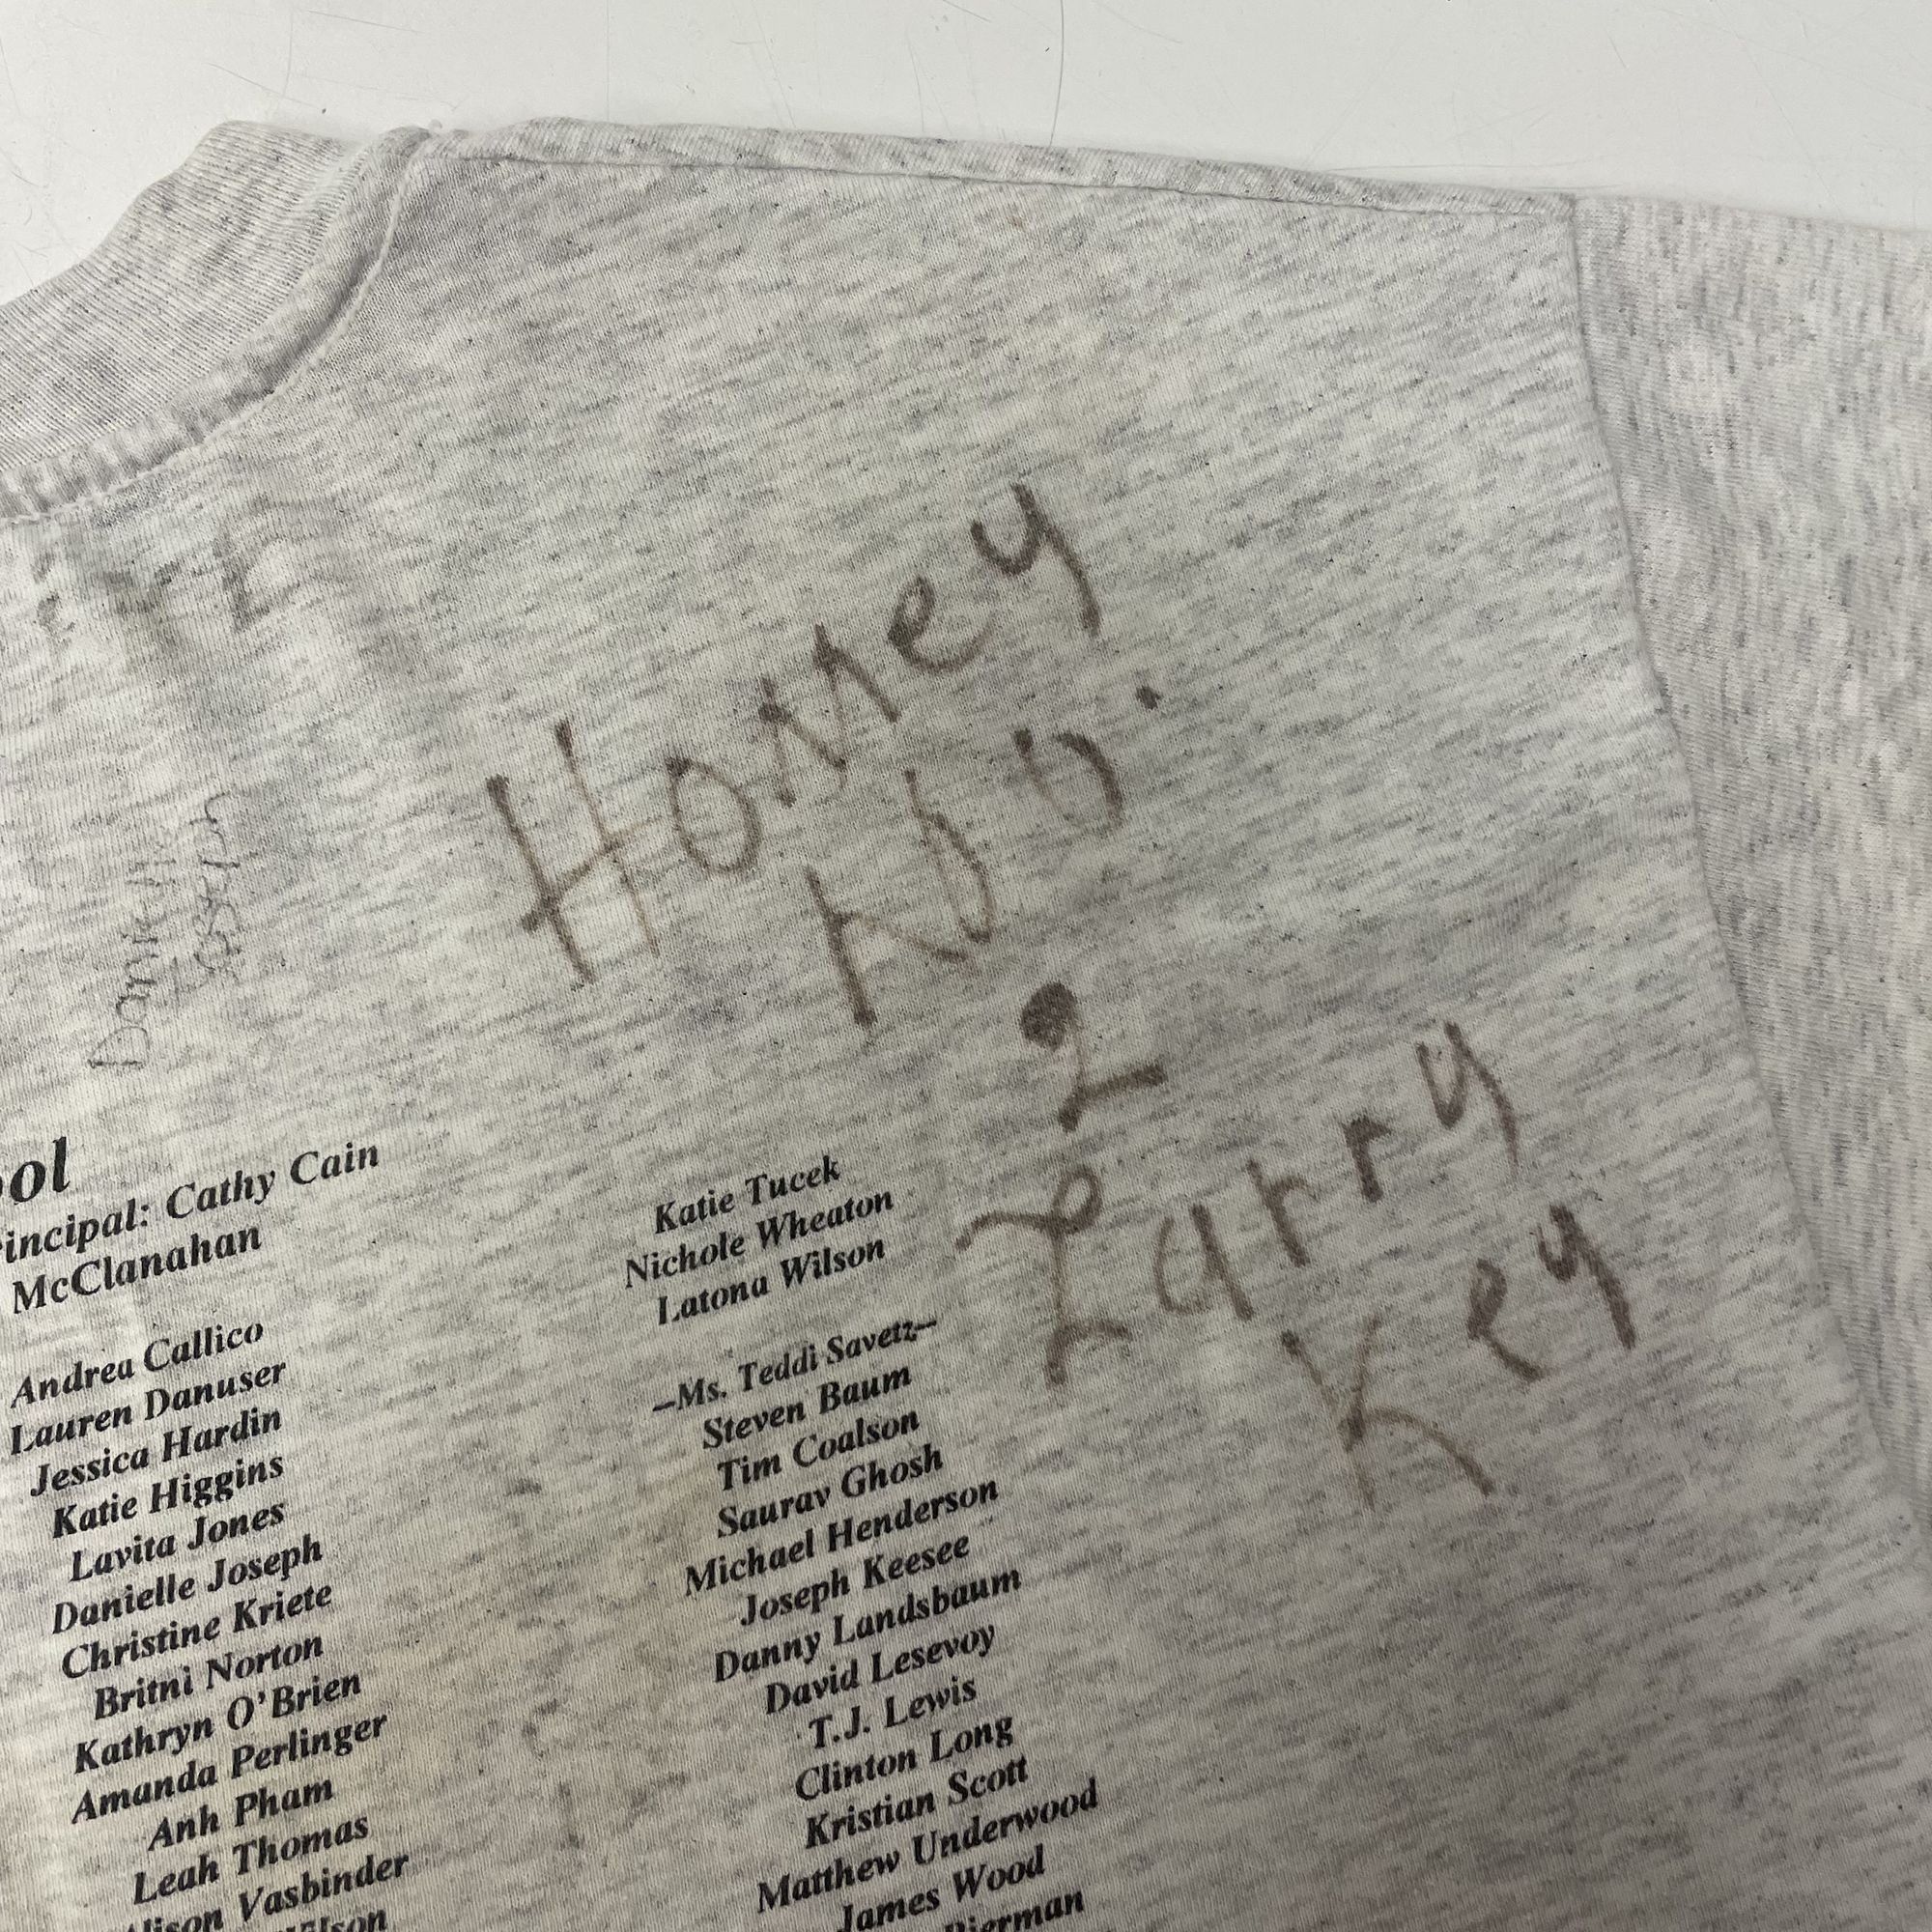 Homey
no.
2
Larry
Key
Danielle
Joseph
ool
rincipal: Cathy Cain
McClanahan
Andrea Callico
Lauren Danuser
Jessica Hardin
Katie Higgins
Lavita Jones
Danielle Joseph
Christine Kriete
Britni Norton
Kathryn O'Brien
Amanda Perlinger
Anh Pham
Leah Thomas
lison Vasbinder
ilson
Katie Tucek
Nichole Wheaton
Latona Wilson
–Ms. Teddi Savetz–
Steven Baum
Tim Coalson
Saurav Ghosh
Michael Henderson
Joseph Keesee
Danny Landsbaum
David Lesevoy
T.J. Lewis
Clinton Long
Kristian Scott
Matthew Underwood
James Wood
Bierman